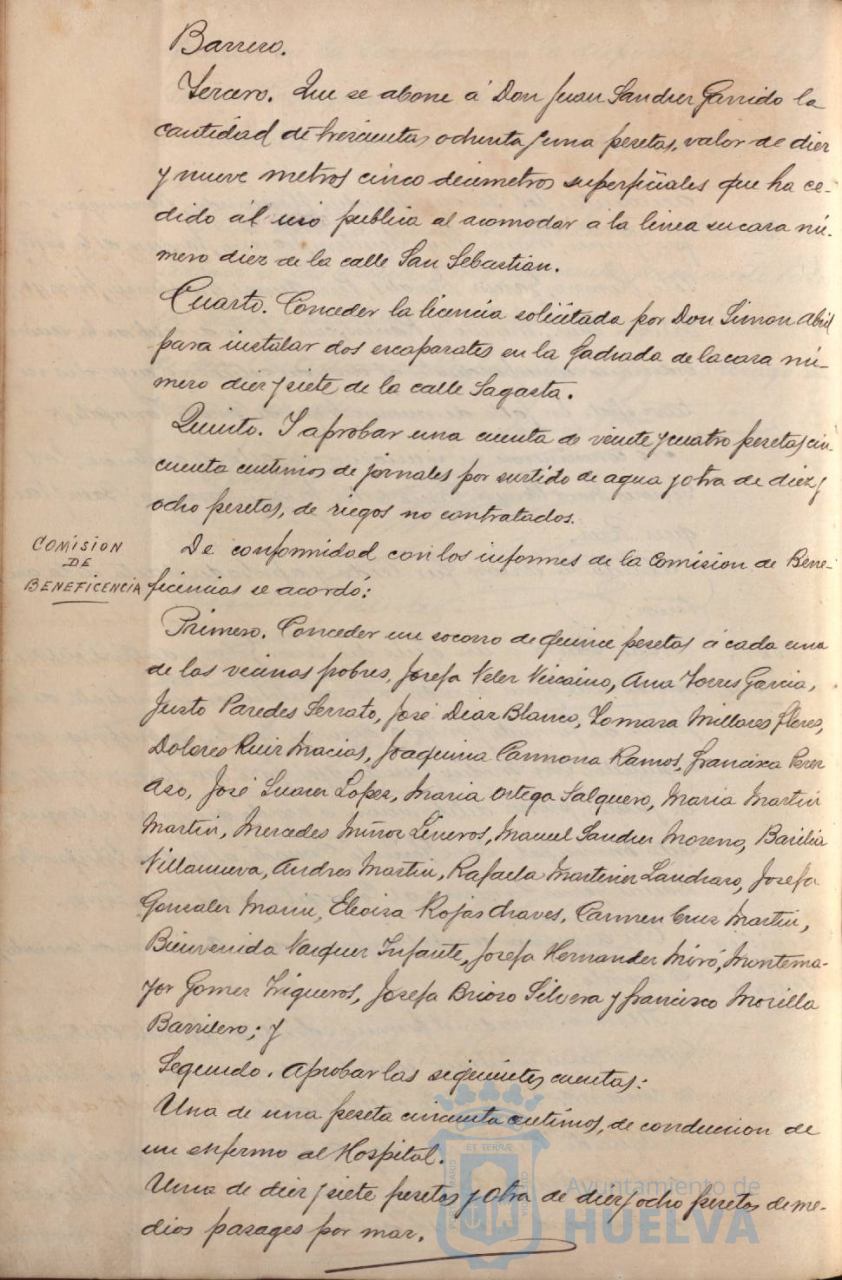 Barrero.
Tercero. Que se abone á Don Juan Sanchez Garrido la
cantidad de trescientas ochenta y una pesetas, valor de diez
y nueve metros cinco decimetros superficiales que ha ce-
dido al uso publico al acomodar á la linea su casa nú-
mero diez de la calle San Sebastian.
Cuarto. Conceder la licencia solicitada por Don Simon Abril
para instalar dos escaparates en la fachada de la casa nú-
mero diez y siete de la calle Sagasta.
Quinto. Y aprobar una cuenta de veinte y cuatro pesetas cin-
cuenta centimos de jornales por surtido de agua y otra de diez y
ocho pesetas, de riegos no contratados.
COMISION
DE
BENEFICENCIA
De conformidad con los informes de la Comision de Bene-
ficencia se acordó:
Primero. Conceder un socorro de quince pesetas á cada una
de las vecinas pobres, Josefa Velez Vizcaino, Ana Torres Garcia,
Justo Paredes Serrato, José Diaz Blanco, Tomasa Millares Flores,
Dolores Ruiz Macias, Joaquina Carmona Ramos, Francisca Perez
Aso, José Suarez Lopez, Maria Ortega Salguero, Maria Martin
Martin, Mercedes Muñoz Liñeros, Manuel Sanchez Moreno, Basilia
Villanueva, Andres Martin, Rafaela Martinez Landraso, Josefa
Gonzalez Marin, Eloisa Rojas Chaves, Carmen Cruz Martin,
Bienvenida Vazquez Infante, Josefa Hernandez Miró, Montema-
yor Gomez Trigueros, Josefa Brioso Silvera y Francisco Morilla
Barrilero; y
Segundo. Aprobar las siguientes cuentas:
Una de una peseta cincuenta centimos, de conduccion de
un enfermo al Hospital.
Una de diez y siete pesetas y otra de diez y ocho pesetas de me-
dios pasages por mar.
Ayuntamiento de
HUELVA